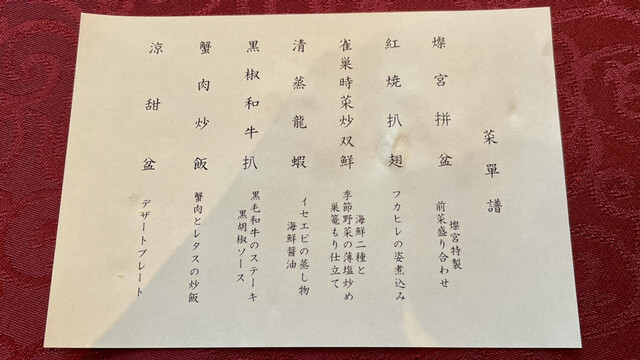 菜單譜
燦宮拼盆
燦宮特製
前菜盛り合わせ
紅焼扒翅
フカヒレの姿煮込み
雀巣時菜炒双鮮
海鮮二種と
季節野菜の薄塩炒め
巣篭もり仕立て
清蒸龍蝦
イセエビの蒸し物
海鮮醤油
黒椒和牛扒
黒毛和牛のステーキ
黒胡椒ソース
蟹肉炒飯
蟹肉とレタスの炒飯
涼甜盆
デザートプレート